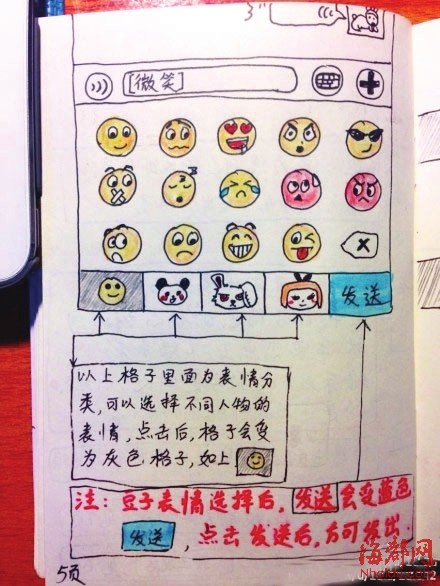 3"
[微笑]
发送
以上格子里面为表情分
类,可以选择不同人物的
表情,点击后,格子会变
为灰色格子,如上
注：豆子表情选择后,发送会变蓝色
发送,点击发送后,方可发出.
5页
海都网